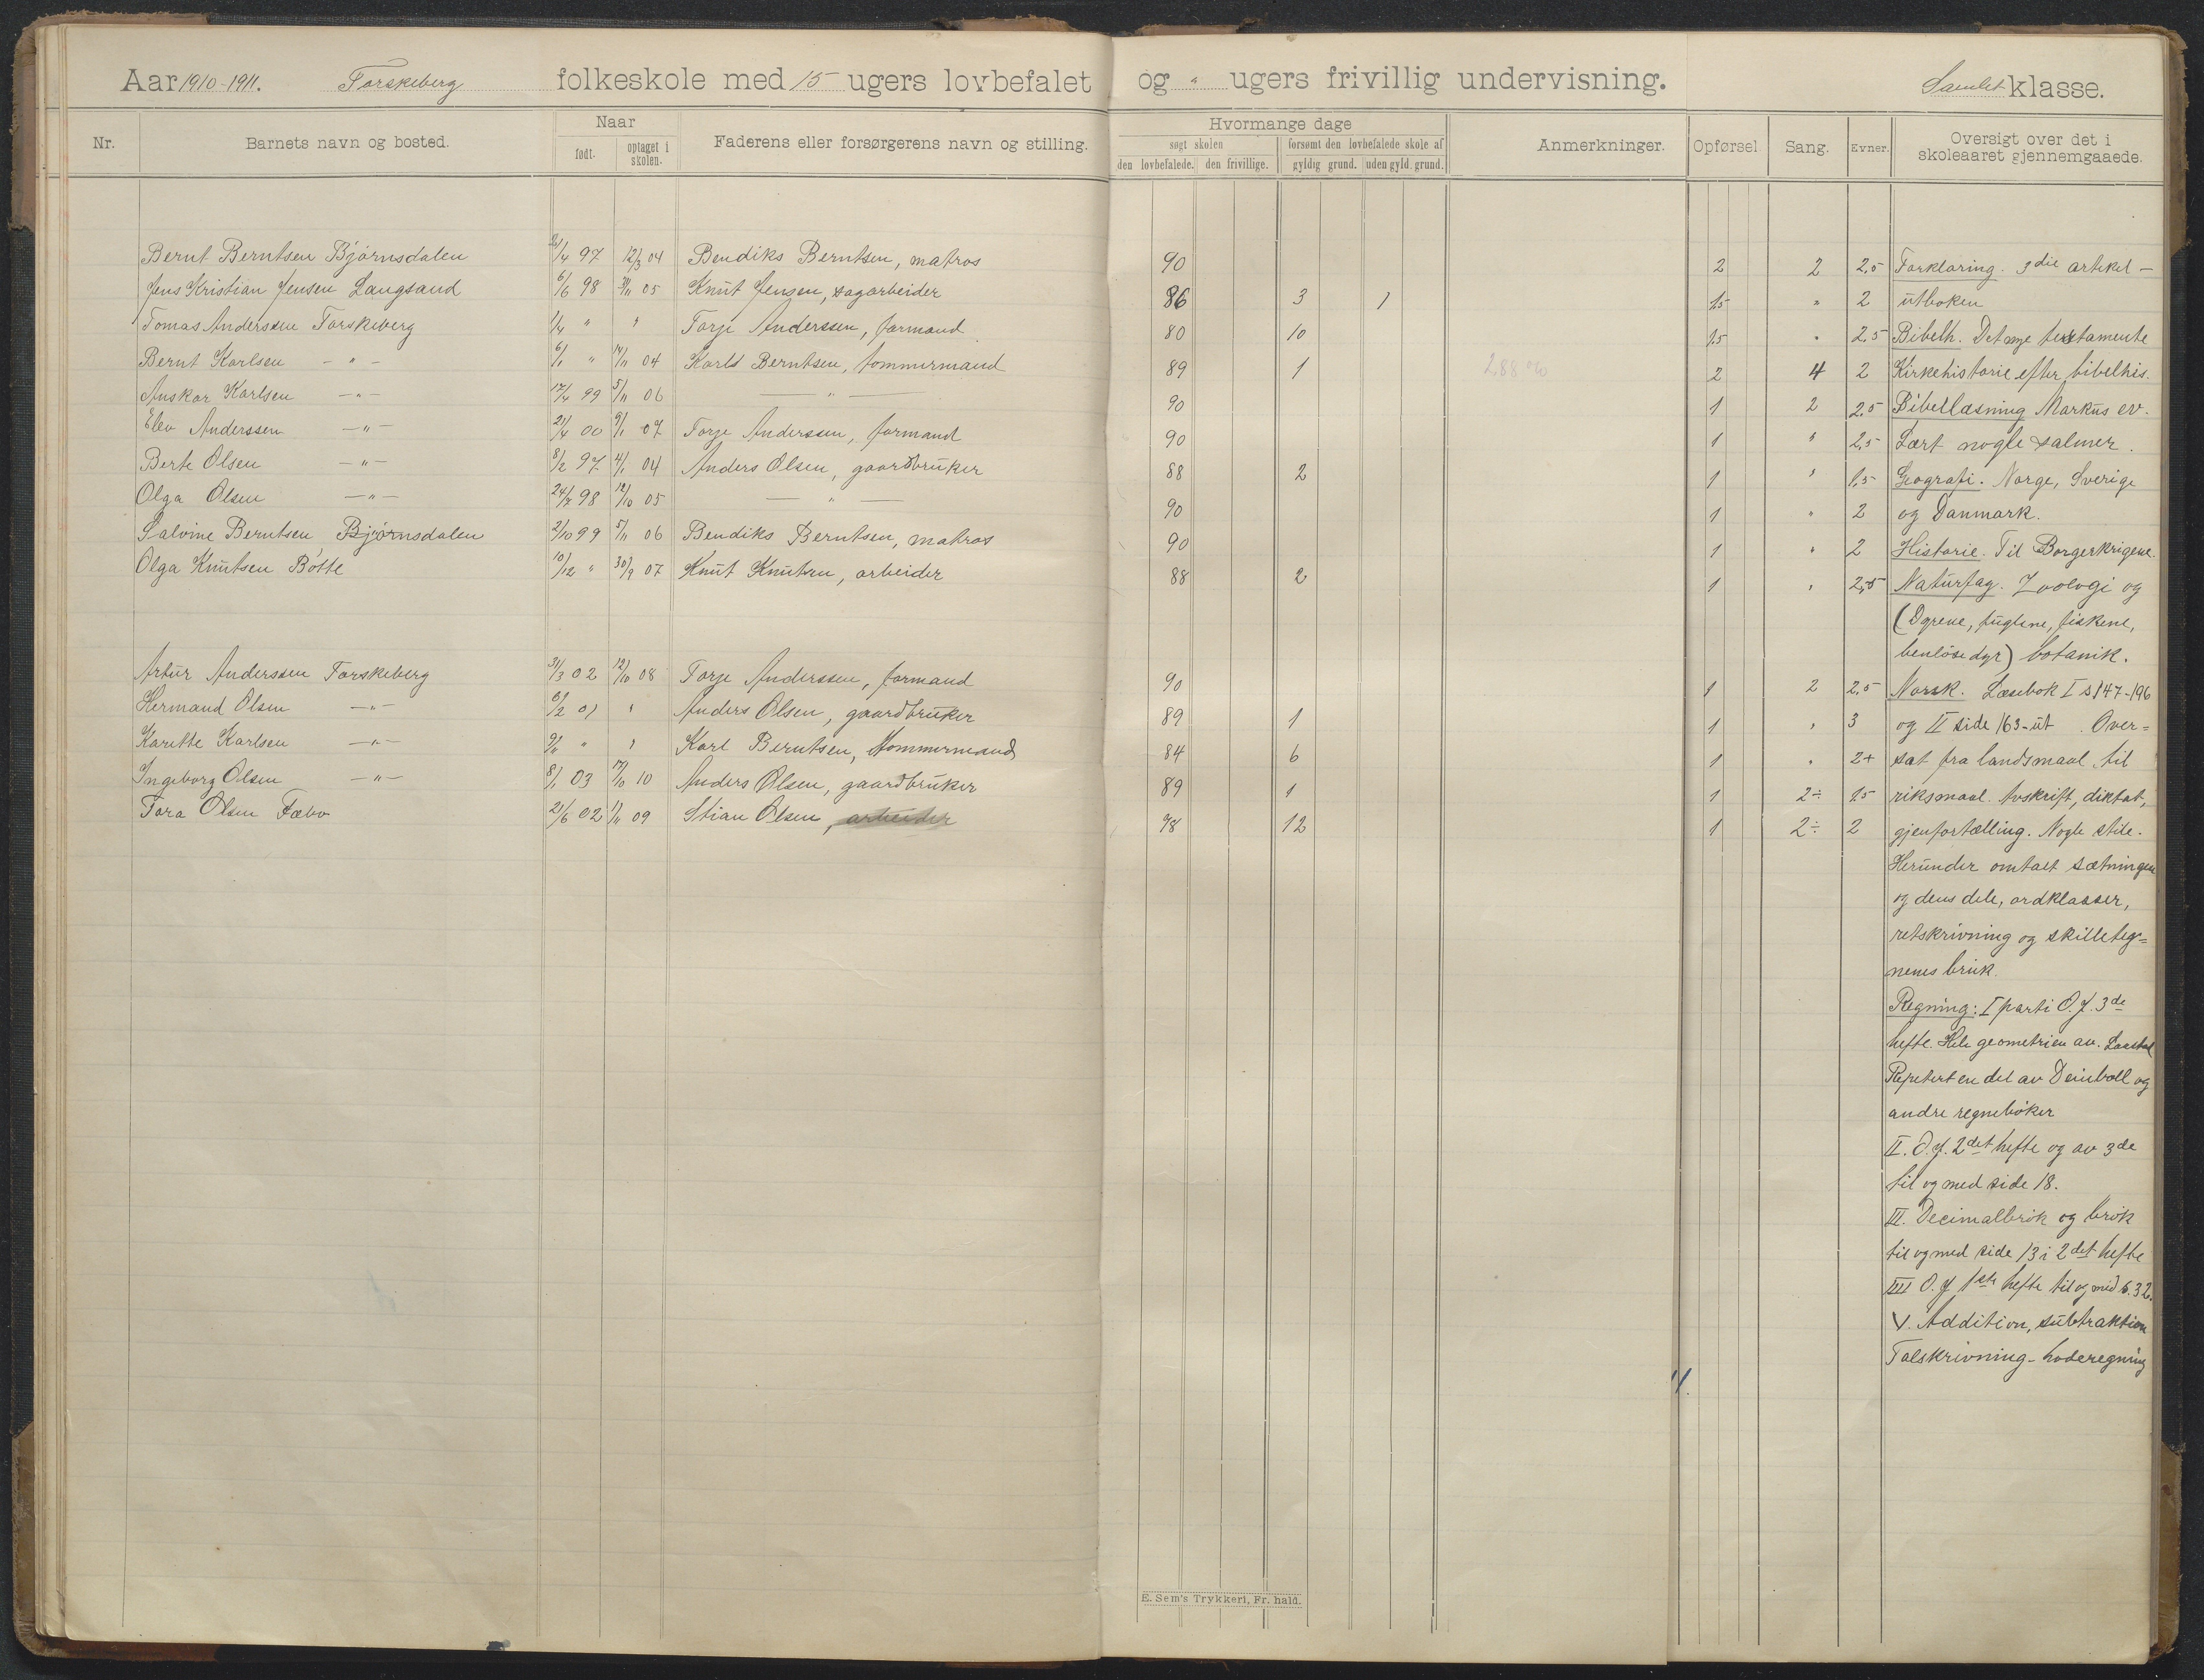 Aar 1910-1911. Torskeberg folkeskole med 15 ugers lovbefalet og " ugers frivillig undervisning. Samlet klasse.
Nr. Barnets navn og bosted. Naar født. optaget i skolen. Faderens eller forsørgerens navn og stilling. Hvormange dage søgt skolen den lovbefalede. den frivillige. forsømt den lovbefalede skole af gyldig grund. uden gyld. grund. Anmerkninger. Opførsel Sang. Evner. Oversigt over det i skoleaaret gjennemgaaede.
Bernt Berntsen Bjørnsdalen 21/4 97 12/3 04 Bendiks Berntsen, matros 90 2 2 2,5 Forklaring. 3die artikel -
Jens Kristian Jensen Langsand 6/6 98 05 Knut Jensen, sagarbeider 86 3 1 1,5 " 2 utboken
Tomas Anderssen Torskeberg 1/4 " " Torje Anderssen, formand 80 10 1,5 " 2,5 Bibelh. Det nye testamente
Bernt Karlsen - " - 6/1 " 14/11 04 Karls Berntsen, tømmermand 89 1 2,88 % 2 4 2 Kirkehistorie efter bibelhis.
Anskar Karlsen - " - 17/4 99 5/11 06 - " - 90 1 2 2,5 Bibellæsning Markus ev.
Elev Anderssen - " - 21/4 00 9/1 07 Torje Anderssen, formand 90 1 " 2,5 Lært nogle salmer.
Berte Olsen - " - 8/2 97 4/1 04 Anders Olsen, gaardbruker 88 2 1 " 1,5 Geografi. Norge, Sverige
Olga Olsen - " - 24/7 98 12/10 05 - " - 90 1 " 2 og Danmark.
Salvine Berntsen Bjørnsdalen 2/10 99 5/11 06 Bendiks Berntsen, matros 90 1 " 2 Historie. Til Borgerkrigene.
Olga Knutsen Botte 10/12 " 30/9 07 Knut Knutsen, arbeider 88 2 1 " 2,5 Naturfag. Zoologi og
(Dyrene, fuglene, fiskene,
benløse dyr) botanik.
Artur Anderssen Torskeberg 31/3 02 12/10 08 Torje Anderssen, formand 90 1 2 2,5 Norsk. Læsebok I s 147-196
Hermand Olsen - " - 6/2 01 " Anders Olsen, gaardbruker 89 1 1 " 3 og II side 163-ut. Over=
Karette Karlsen - " - 9/11 " " Karl Berntsen, tømmermand 84 6 1 " 2+ sat fra landsmaal til
Ingeborg Olsen - " - 8/1 03 17/10 10 Anders Olsen, gaardbruker 89 1 1 2÷ 1,5 riksmaal. Avskrift, diktat,
Tora Olsen Fæbo 21/6 02 1/11 09 Stian Olsen, arbeider 78 12 1 2÷ 2 gjenfortælling. Nogle stile.
Herunder omtalt sætningen
og dens dele, ordklasser,
retskrivning og skilleteg=
nenes bruk.
Regning: I parti O.J. 3de
hefte. Hele geometrien av.
Repetert en del av Deinboll og
andre regnebøker
II. O.J. 2det hefte og av 3de
til og med side 18.
III. Decimalbrøk og brøk
til og med side 13 i 2det hefte
IIII O.J 1ste hefte til og med s. 32.
V. Addition, subtraktion
Talskrivning - hoderegning
11.
E. Sem's Trykkeri, Fr. hald.